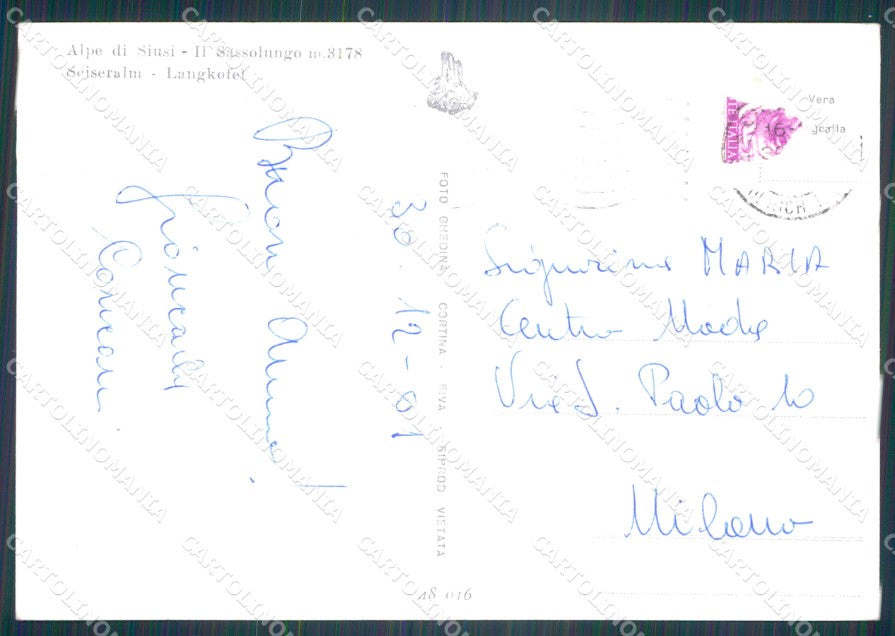 Alpe di Siusi - Il Sassolungo m.3178
Seiseralm - Langkofel
Buon Anno
30.12-61
FOTO GHEDINA CORTINA - RIPROD VIETATA
Vera
ITALIANE
16
Signorina MARIA
Centro Moda
Via S. Paolo 10
Milano
48 016
CARTOLINOMANIA